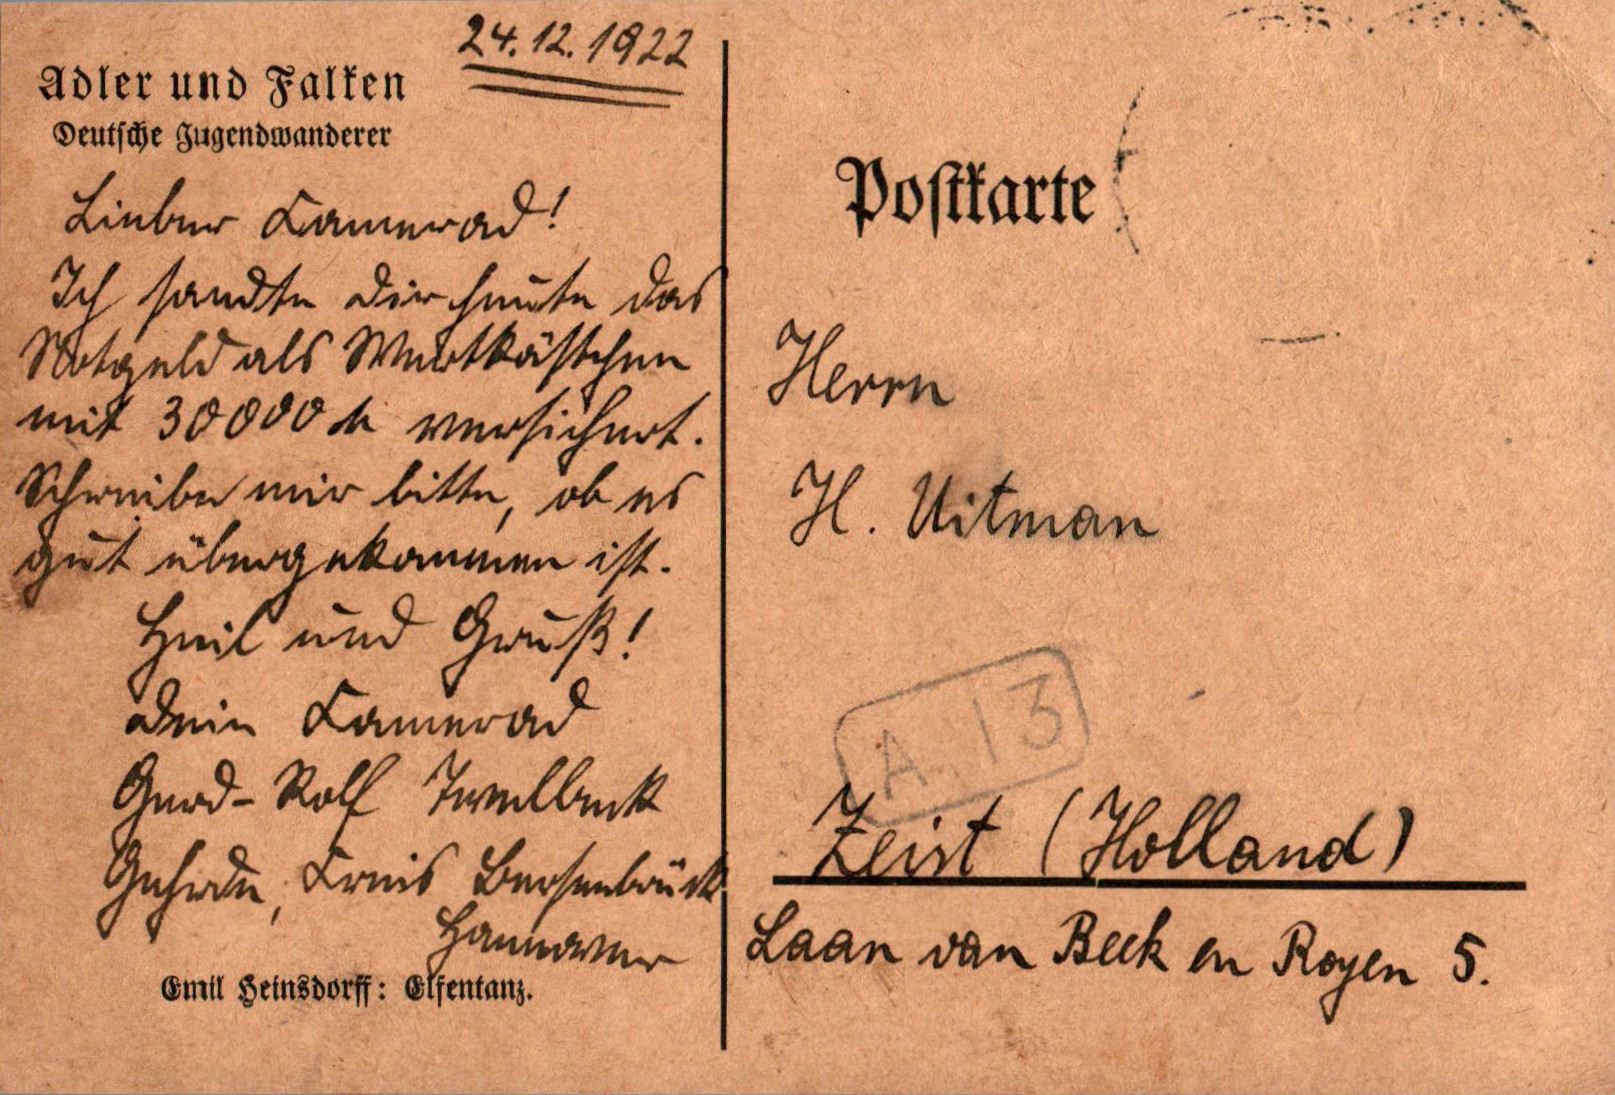 24.12.1922
Adler und Falken
Deutsche Jugendwanderer
Lieber Kamerad!
Ich sandte dir heute das
Notgeld als Wertkästchen
mit 30000 M versichert.
Schreibe mir bitte, ob es
gut übergekommen ist.
Heil und Gruß!
Dein Kamerad
Gerd-Rolf Twelbeck
Gehrde, Kreis Bersenbrück
Hannover
Emil Heinsdorff: Elfentanz.
Postkarte
Herrn
H. Uitman
A. 13
Zeist (Holland)
Laan van Beek en Royen 5.